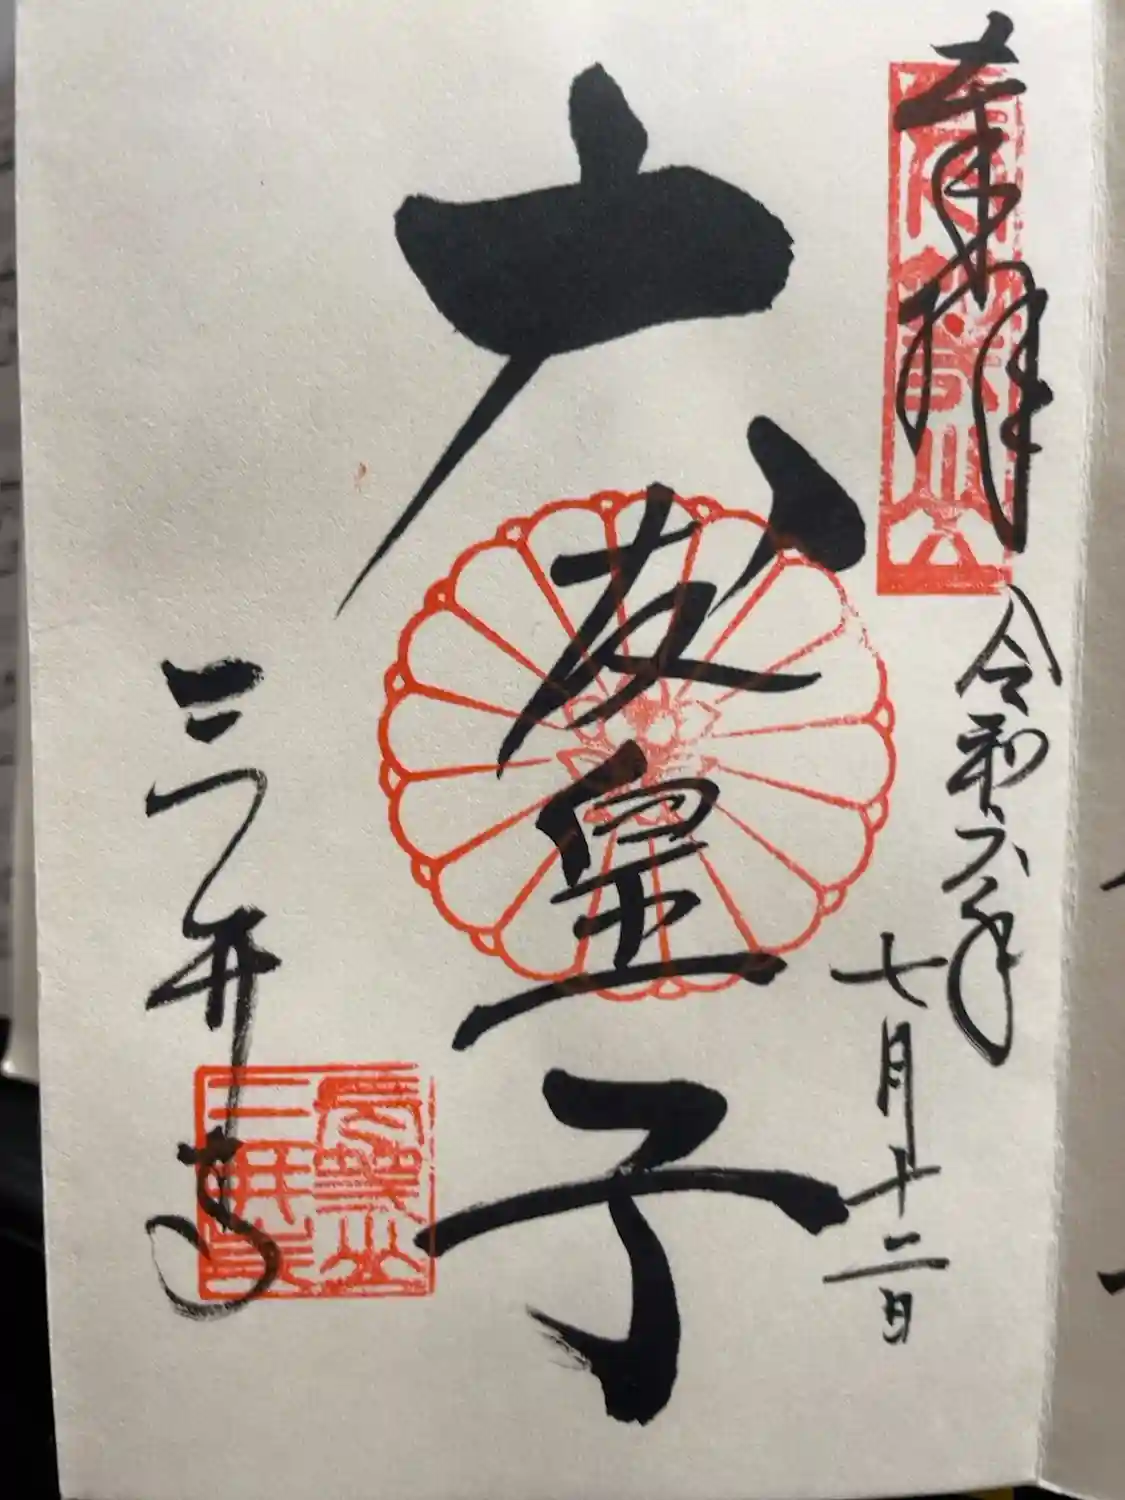 奉拝
令和六年
七月十二日
大友皇子
三井寺
長等山
三井寺